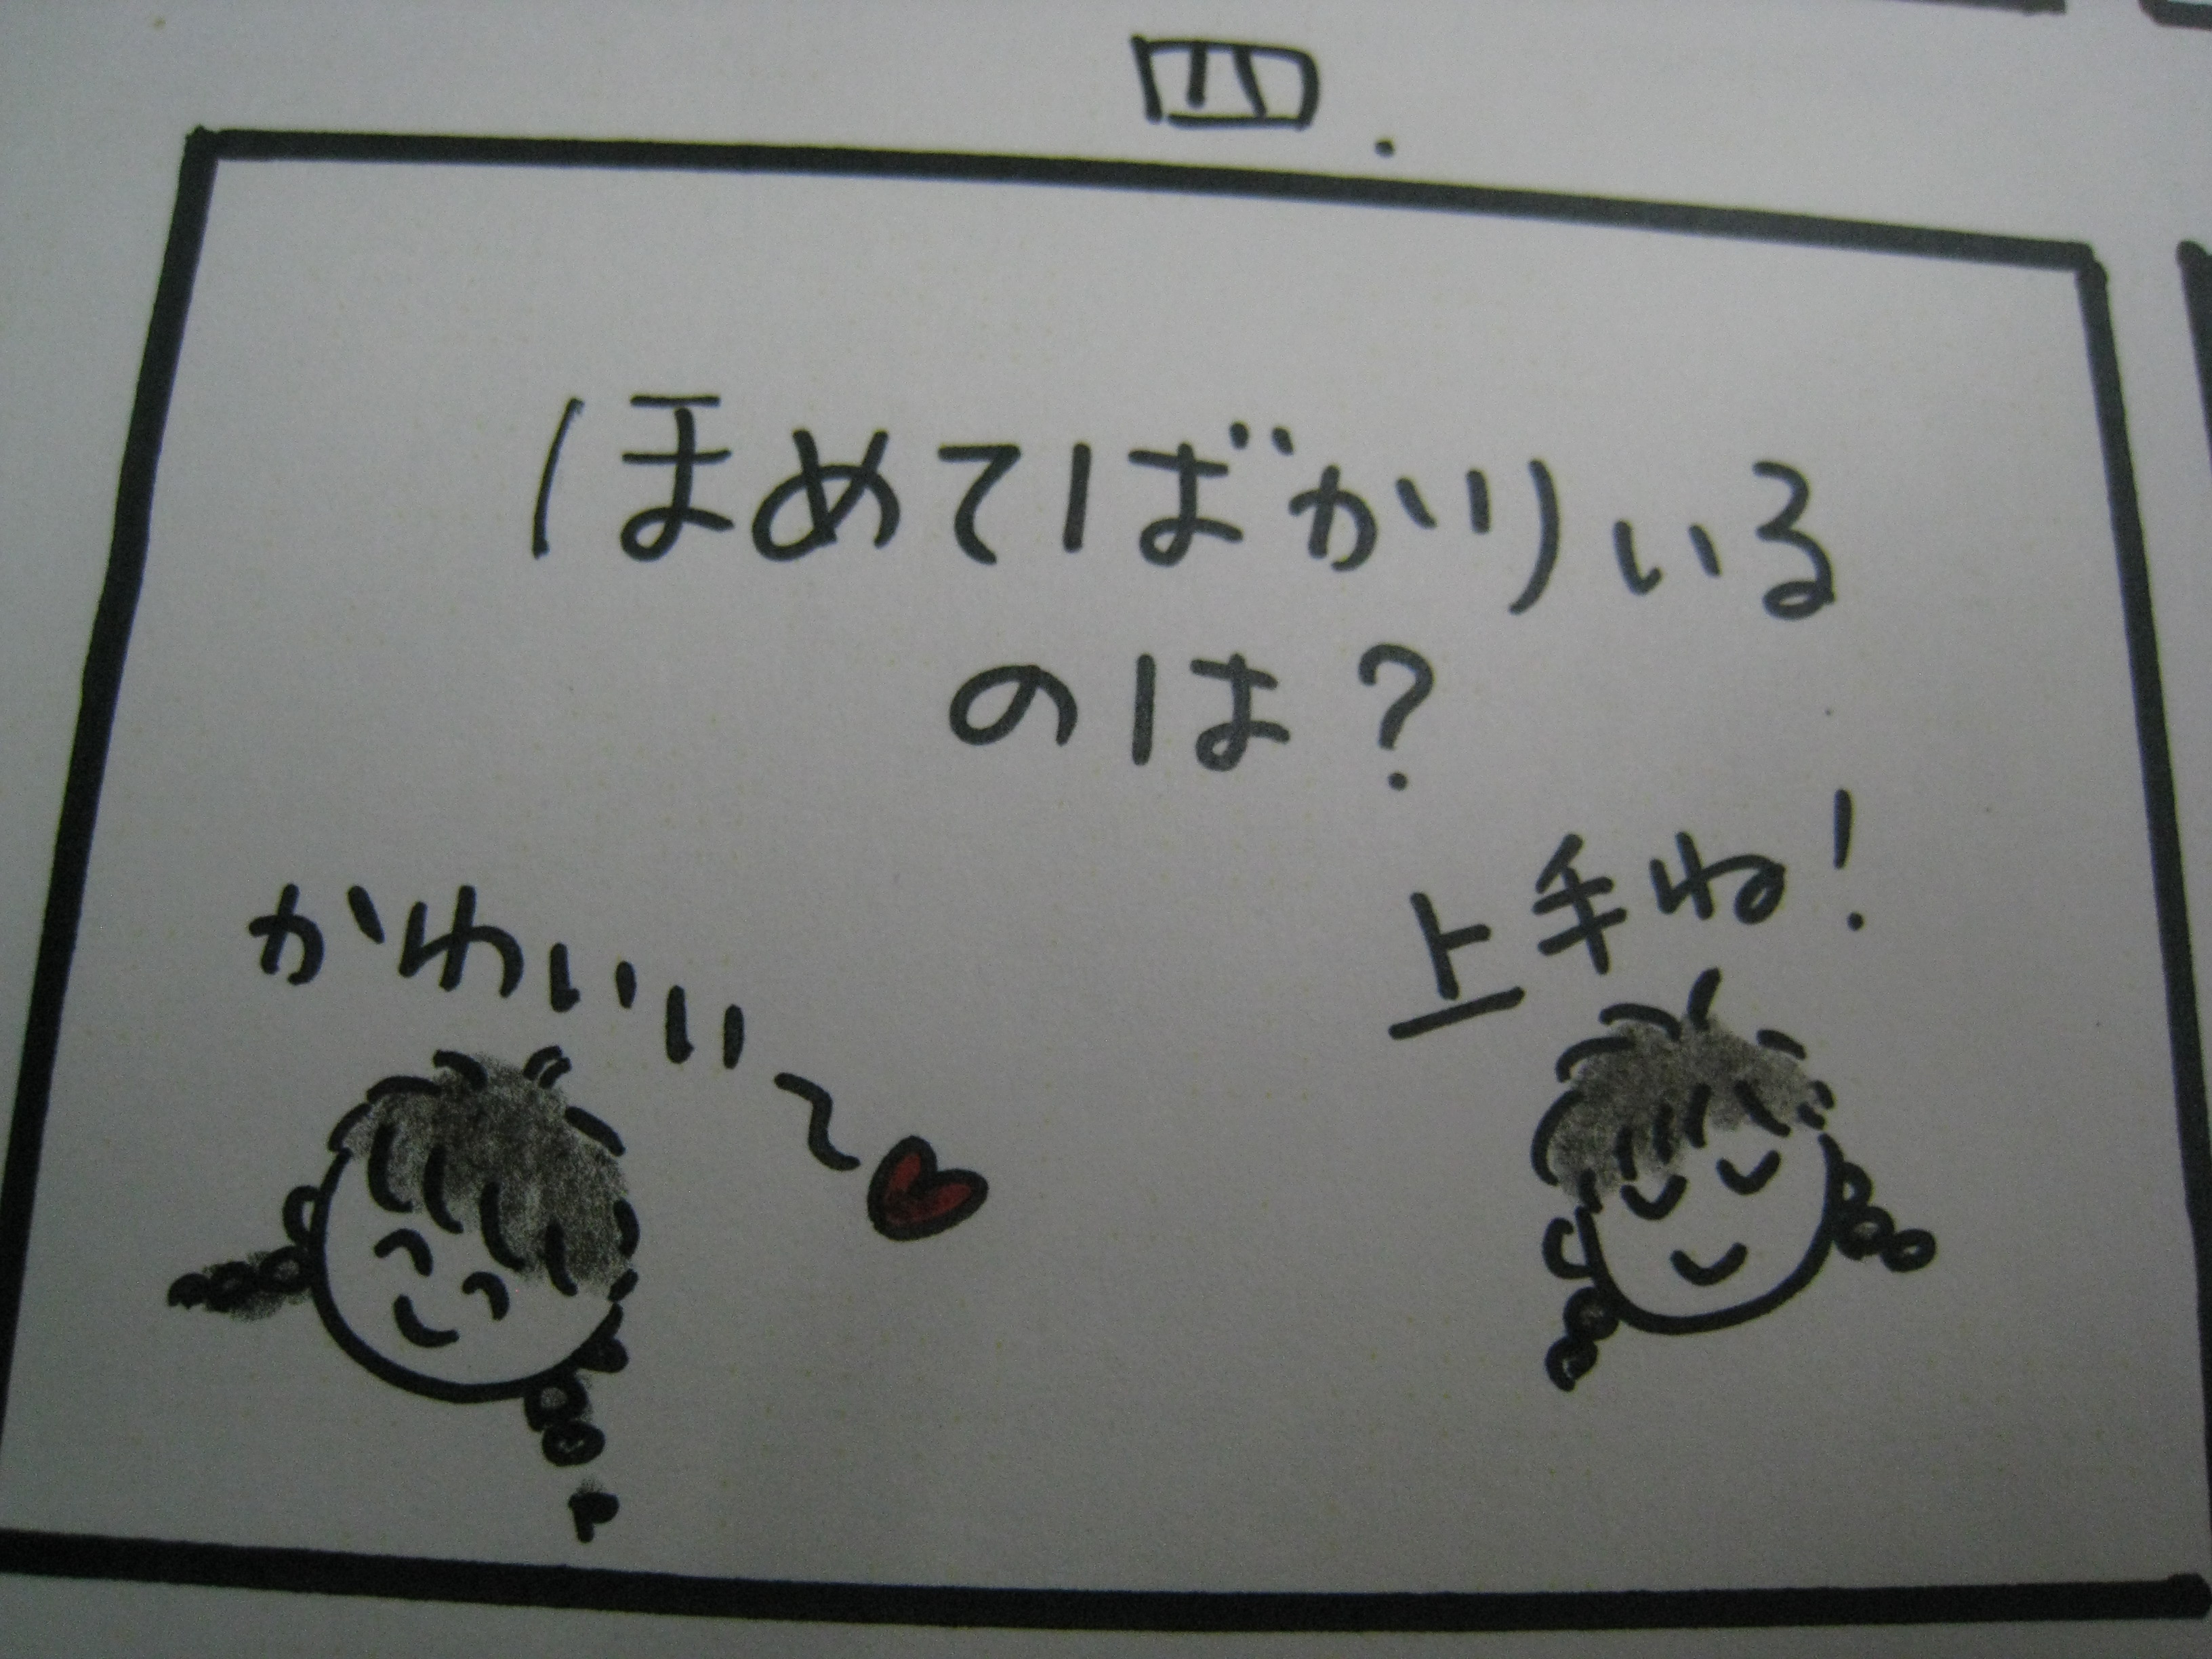 四.
ほめてばかりいる
のは?
かわいい〜
上手ね!